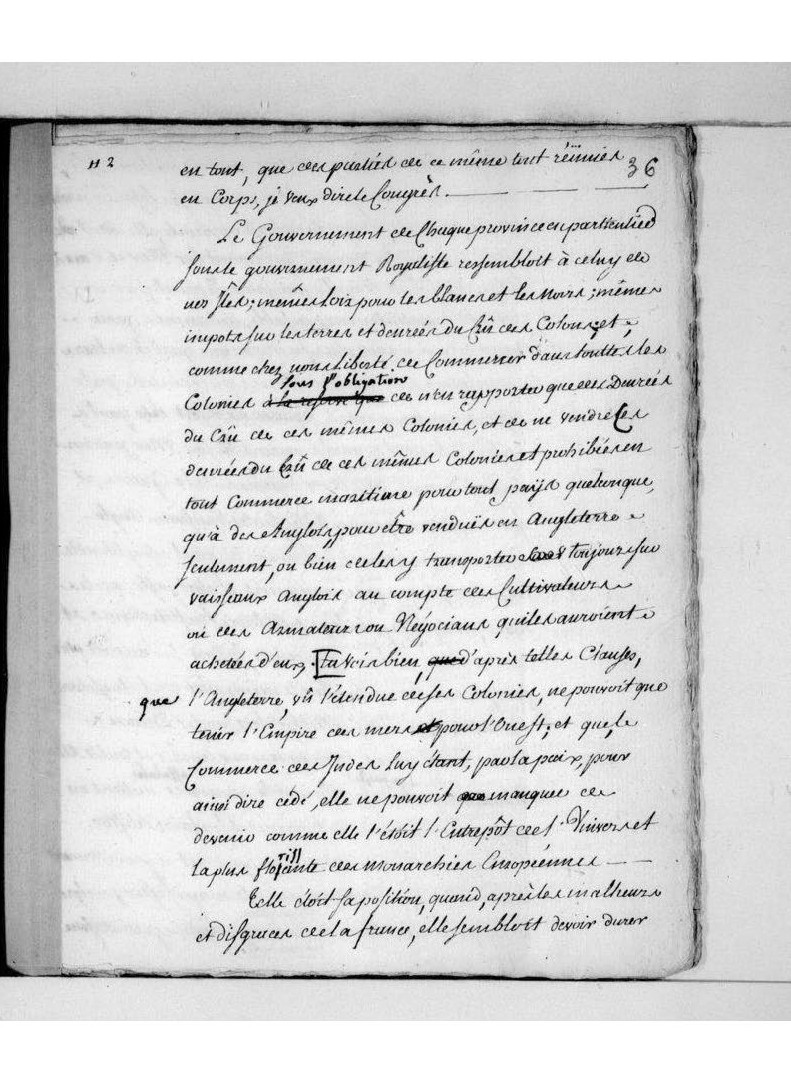 n 2
36
en tout, que des parties de ce même tout réünies
en Corps, je veux dire le Congrès.
Le Gouvernement de Chaque province en particulier
sous le gouvernement Royaliste ressembloit à celuy de
nos Îsles; mêmes loix pour les blancs et les noirs; mêmes
impots sur les terres et denrées du Crû des Colons; et,
comme chez nous liberté de Commercer dans touttes les
sous l'obligation
Colonies à la reserve que de n'en rapporter que des Denrées
du Crû de ces mêmes Colonies, et de ne vendre les
denrées du Crû de ces mêmes Colonies et prohibées en
tout Commerce maritime pour tout païs quelconque,
qu'à des Anglois, pour être venduës en Angleterre
seulement, ou bien de les y transporter toujours sur
vaisseaux Anglois au compte des Cultivateurs
ou des Armateurs ou Négocians qui les auroient
achetées d'eux. tu vois bien, que d'après telles Clauses,
que l'Angleterre, vû l'étendue de ses Colonies, ne pouvoit que
tenir l'Empire des mers et pour l'Ouest; et que le
Commerce des Indes luy étant, par la paix, pour
ainsi dire cédé, elle ne pouvoit que manquer de
devenir comme elle l'étoit l'Entrepôt de l'Univers et
la plus florissante des monarchies Européennes
Telle étoit sa position, quand, après les malheurs
et disgraces de la france, elle sembloit devoir durer